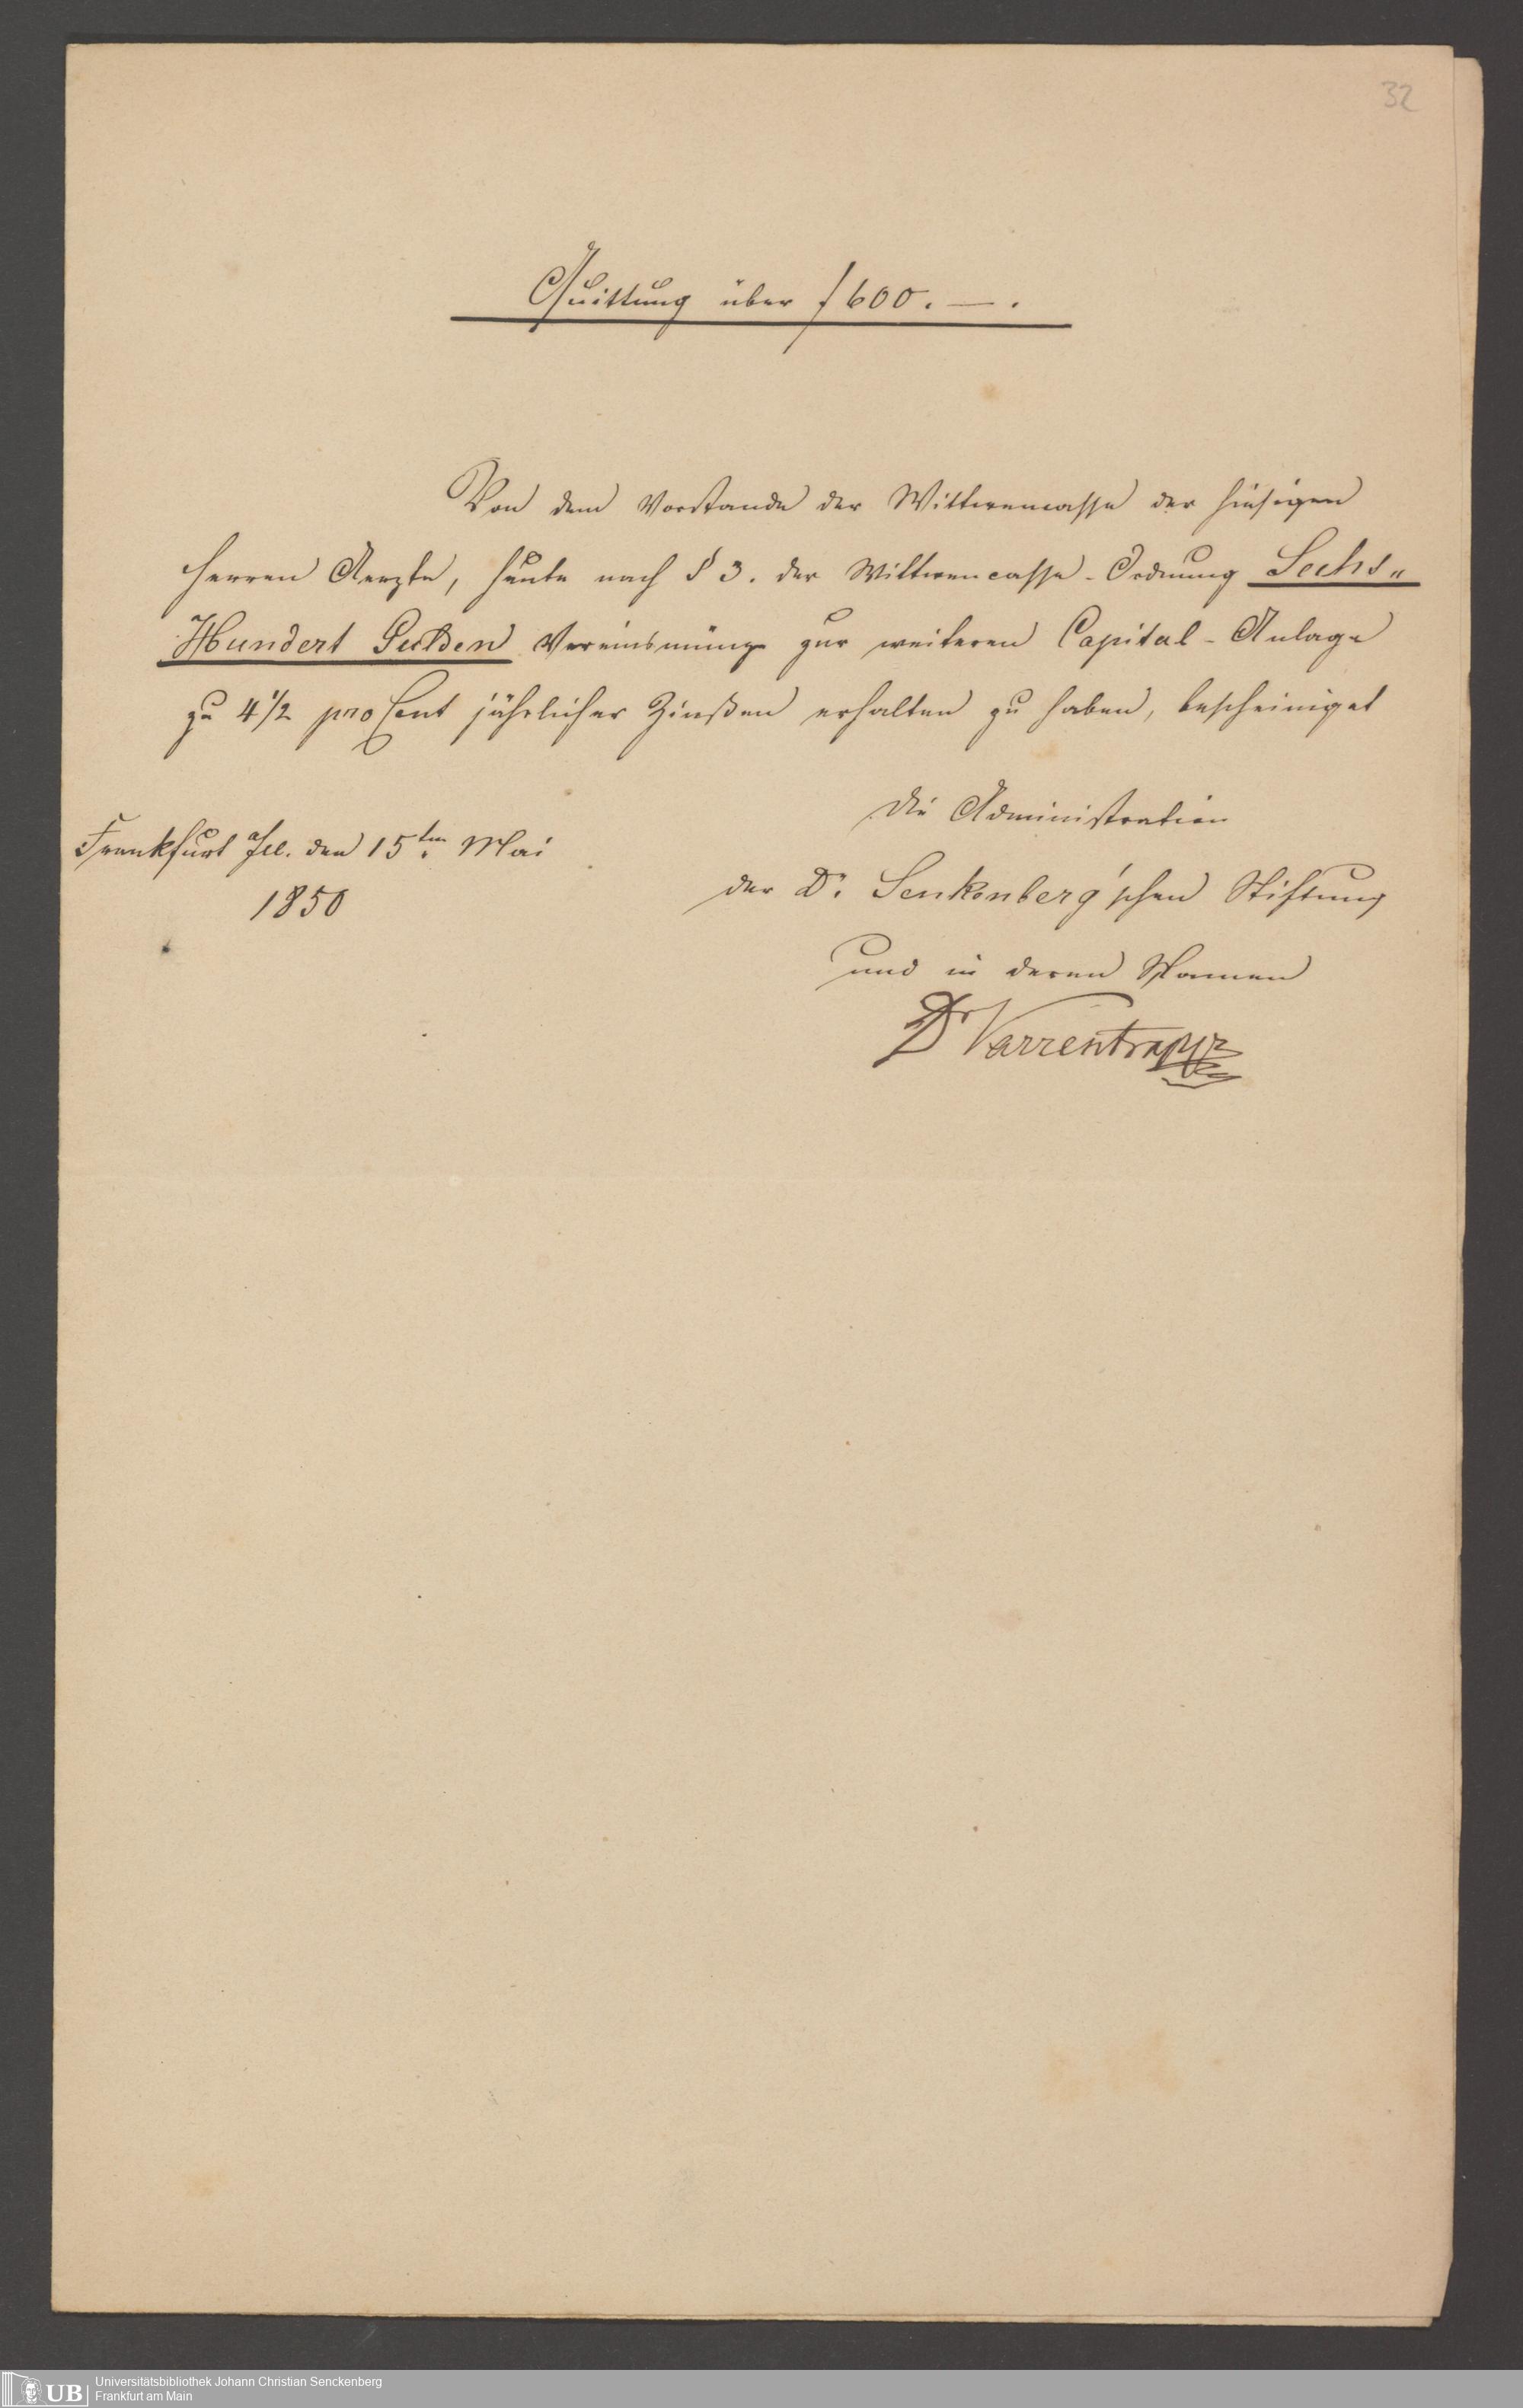 32
Quittung über f 600. — .
Von dem Vorstande der Wittwencasse der hiesigen
Herren Aerzte, heute nach § 3. der Wittwencasse-Ordnung Sechs„
Hundert Gulden Vereinsmünze zur weiteren Capital-Anlage
zu 4 1/2 pro Cent jährlicher Zinßen erhalten zu haben, bescheiniget
Die Administration
Frankfurt a/M. den 15ten Mai
1850
der Dr. Senkenberg'schen Stiftung
und in deren Namen
Dr Varrentrapp
UB
Universitätsbibliothek Johann Christian Senckenberg
Frankfurt am Main